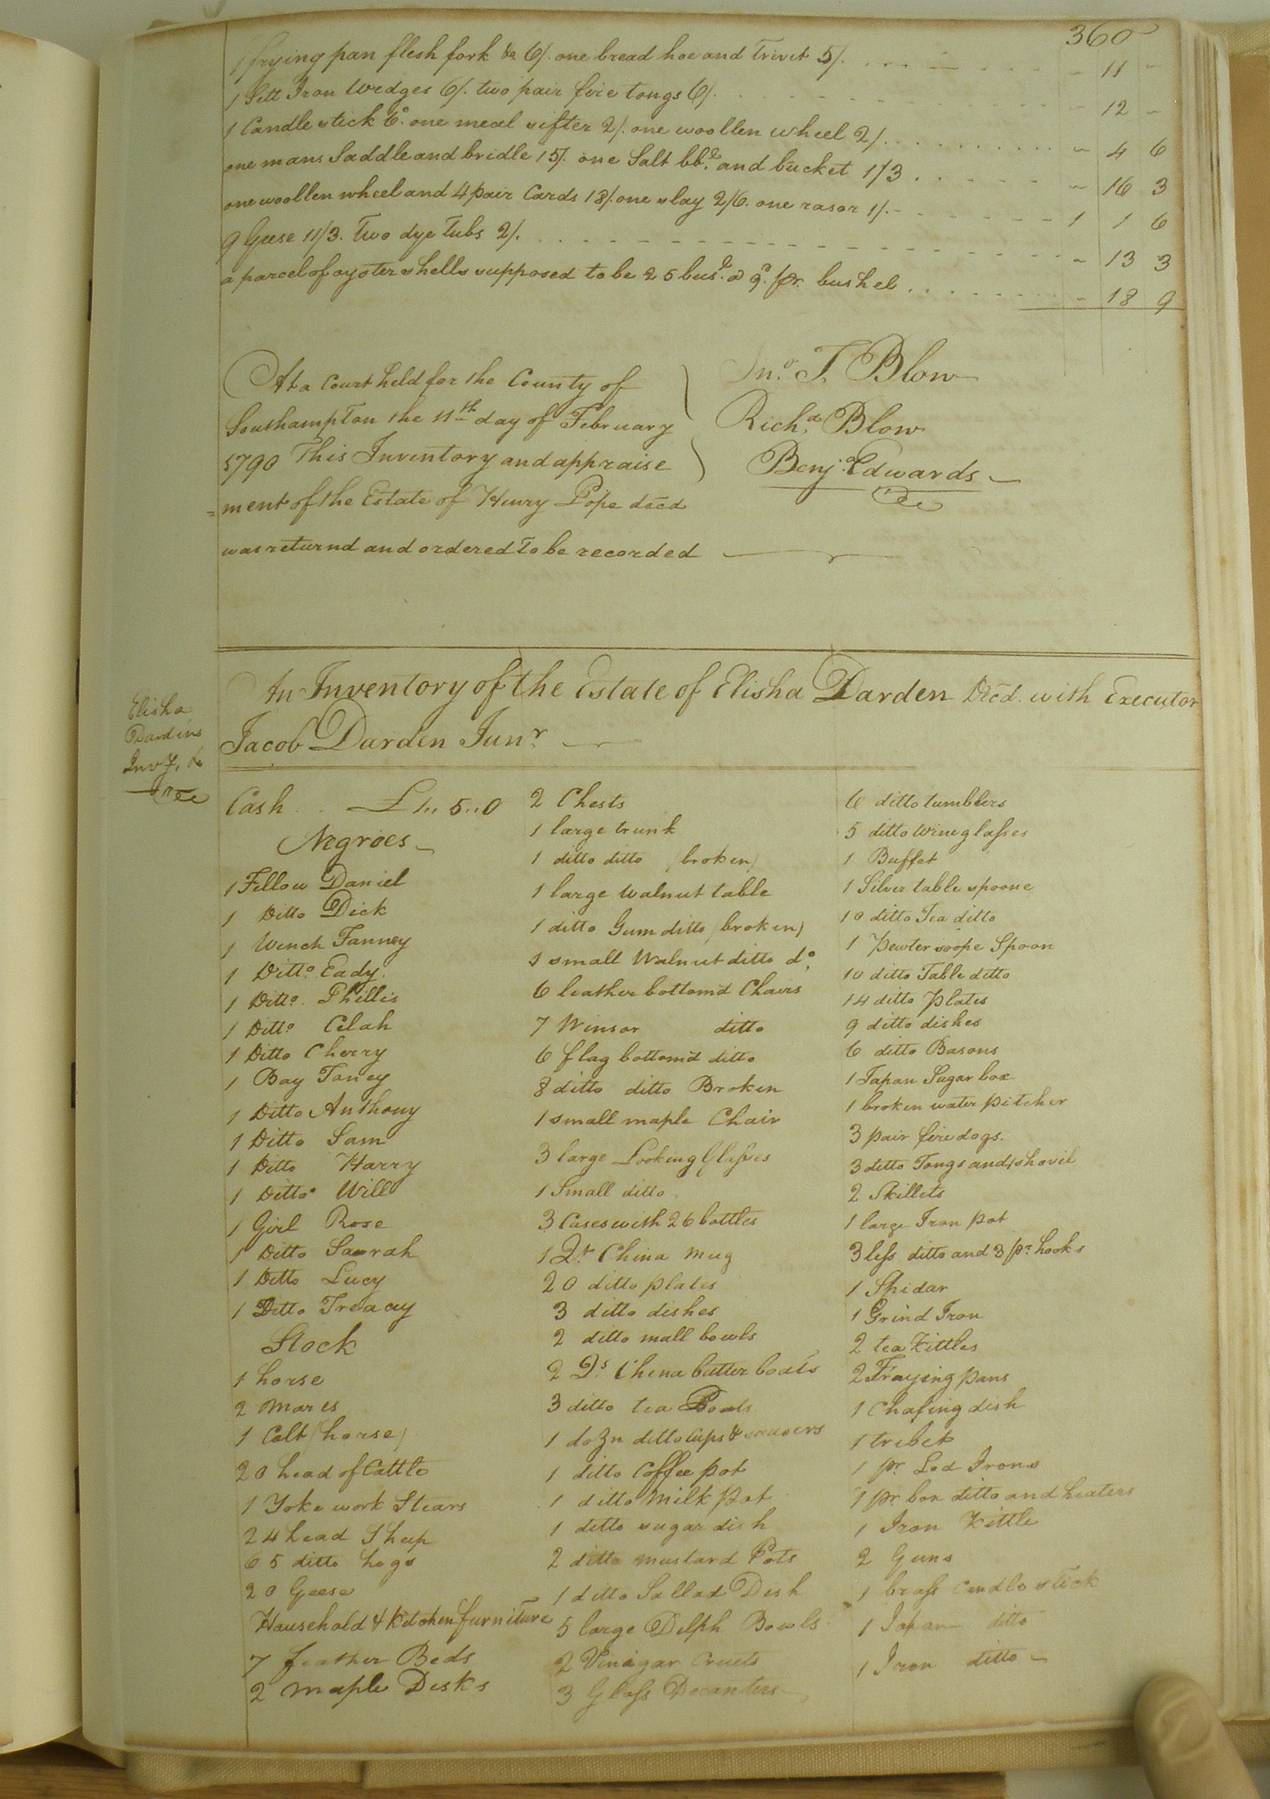 360
1 frying pan flesh fork &c 6/. one bread hoe and trivit 5/. - 11 -
1 Sett Iron Wedges 6/. two pair fire tongs 6/. - 12 -
1 Candlestick 6d. one meal sifter 2/. one woollen wheel 2/. - 4 6
one mans Saddle and bridle 15/. one Salt bbl. and bucket 1/3. - 16 3
one woollen wheel and 4 pair Cards 18/. one slay 2/6. one rasor 1/. - 1 1 6
9 Geese 11/3. Two dye Tubs 2/. - 13 3
a parcel of oyster shells supposed to be 25 busl. a 9d. pr. bushel - 18 9
At a Court held for the County of
Southampton the 11th day of February
1790 This Inventory and appraise
=ment of the Estate of Henry Pope decd
was returnd and ordered To be recorded
Jno. T. Blow
Richd. Blow
Benj. Edwards
Elisha
Dardens
Invy. &c
An Inventory of the Estate of Elisha Darden Decd. with Executor
Jacob Darden Junr
Cash £1.. 5..0
Negroes
1 Fellow Daniel
1 Ditto Dick
1 Wench Fanney
1 Ditto Eady.
1 Ditto. Phillis
1 Ditto Celah
1 Ditto Cherry
1 Boy Toney
1 Ditto Anthony
1 Ditto Sam
1 Ditto Harry
1 Ditto Will
1 Girl Rose
1 Ditto Saorah
1 Ditto Lucy
1 Ditto Treacy
Stock
1 horse
2 mares
1 Colt (horse)
20 head of Cattle
1 Yoke work Stears
24 head Sheep
65 ditto hogs
20 Geese
Household & Kitchen furniture
7 feather Beds
2 maple Desks
2 Chests
1 large trunk
1 ditto ditto (broken)
1 large walnut table
1 ditto Gum ditto (broken)
1 small Walnut ditto do.
6 leather bottomd Chairs
7 Winsor ditto
6 flag bottomd ditto
8 ditto ditto Broken
1 small maple Chair
3 large Looking Glasses
1 Small ditto
3 Cases with 26 bottles
1 Qt China mug
20 ditto plates
3 ditto dishes
2 ditto mall bowls
2 Qs China butter boats
3 ditto tea Pots
1 dozn ditto cups & saucers
1 ditto Coffee pot
1 ditto Milk Pot
1 ditto sugar dish
2 ditto mustard Pots
1 ditto Sallad Dish
5 large Delph Bowls
2 Vinagar Cruets
3 Glass Decanters
6 ditto tumblers
5 ditto Wine glasses
1 Buffet
1 Silver table spoone
10 ditto Tea ditto
1 Pewter soope Spoon
10 ditto Table ditto
14 ditto plates
9 ditto dishes
6 ditto Basons
1 Japan Sugar box
1 broken water pitcher
3 pair fire dogs.
3 ditto Tongs and shovil
2 Skillets
1 large Iron pot
3 less ditto and 3 pr hooks
1 Spidar
1 Grind Iron
2 tea Kittles
2 Fraying pans
1 Chafing dish
1 trebet
1 pr. Sad Irons
1 pr. box ditto and heaters
1 Iron Kittle
2 Guns
1 brass Candle stick
1 Japan ditto
1 Iron ditto